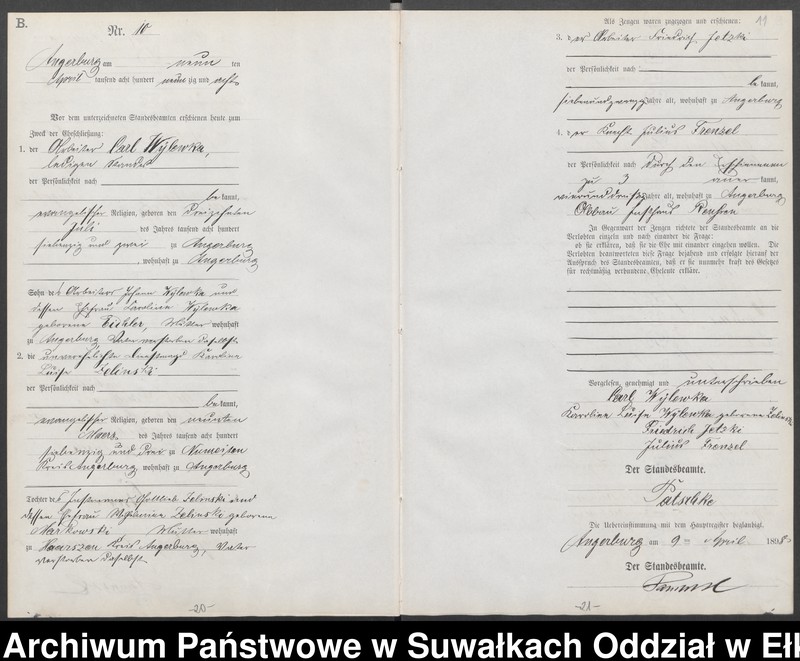 B.
Nr. 10
Angerburg am neun ten
April tausend acht hundert neun zig und acht
Vor dem unterzeichneten Standesbeamten erschienen heute zum
Zweck der Eheschließung:
1. der Arbeiter Carl Wylewka,
ledigen Standes
der Persönlichkeit nach
be kannt,
evangelischer Religion, geboren den
Juli des Jahres tausend acht hundert
siebenzig und zwei zu Angerburg
, wohnhaft zu Angerburg
Sohn des Arbeiters Johann Wylewka und
dessen Ehefrau Caroline Wylewka
geborene Eichler, Mutter wohnhaft
zu Angerburg Vater verstorben daselbst
2. die unverehelichte Karoline
Luise Zelinski
der Persönlichkeit nach
be kannt,
evangelischer Religion, geboren den neunten
Maerz des Jahres tausend acht hundert
siebenzig und drei zu
Kreis Angerburg wohnhaft zu Angerburg
Tochter des Gottlieb Zelinski und
dessen Ehefrau Wilhelmine Zelinski geborene
Markowski Mutter wohnhaft
zu Haarszen Kreis Angerburg, Vater
verstorben daselbst
-20-
11
Als Zeugen waren zugezogen und erschienen:
3. der Arbeiter Friedrich Jetzki
der Persönlichkeit nach
be kannt,
siebenundzwanzig Jahre alt, wohnhaft zu Angerburg
4. der Julius Frenzel
der Persönlichkeit nach durch den
zu 3 aner kannt,
vierunddreißig Jahre alt, wohnhaft zu Angerburg
In Gegenwart der Zeugen richtete der Standesbeamte an die
Verlobten einzeln und nach einander die Frage:
ob sie erklären, daß sie die Ehe mit einander eingehen wollen. Die
Verlobten beantworteten diese Frage bejahend und erfolgte hierauf der
Ausspruch des Standesbeamten, daß er sie nunmehr kraft des Gesetzes
für rechtmäßig verbundene Eheleute erkläre.
Vorgelesen, genehmigt und unterschrieben
Carl Wylewka
Karoline Luise Wylewka geborene Zelinski
Friedrich Jetzki
Julius Frenzel
Der Standesbeamte.
Patschke
Die Uebereinstimmung mit dem Hauptregister beglaubigt.
Angerburg am 9 ten April 1898
Der Standesbeamte.
-21-
Archiwum Państwowe w Suwałkach Oddział w Ełk